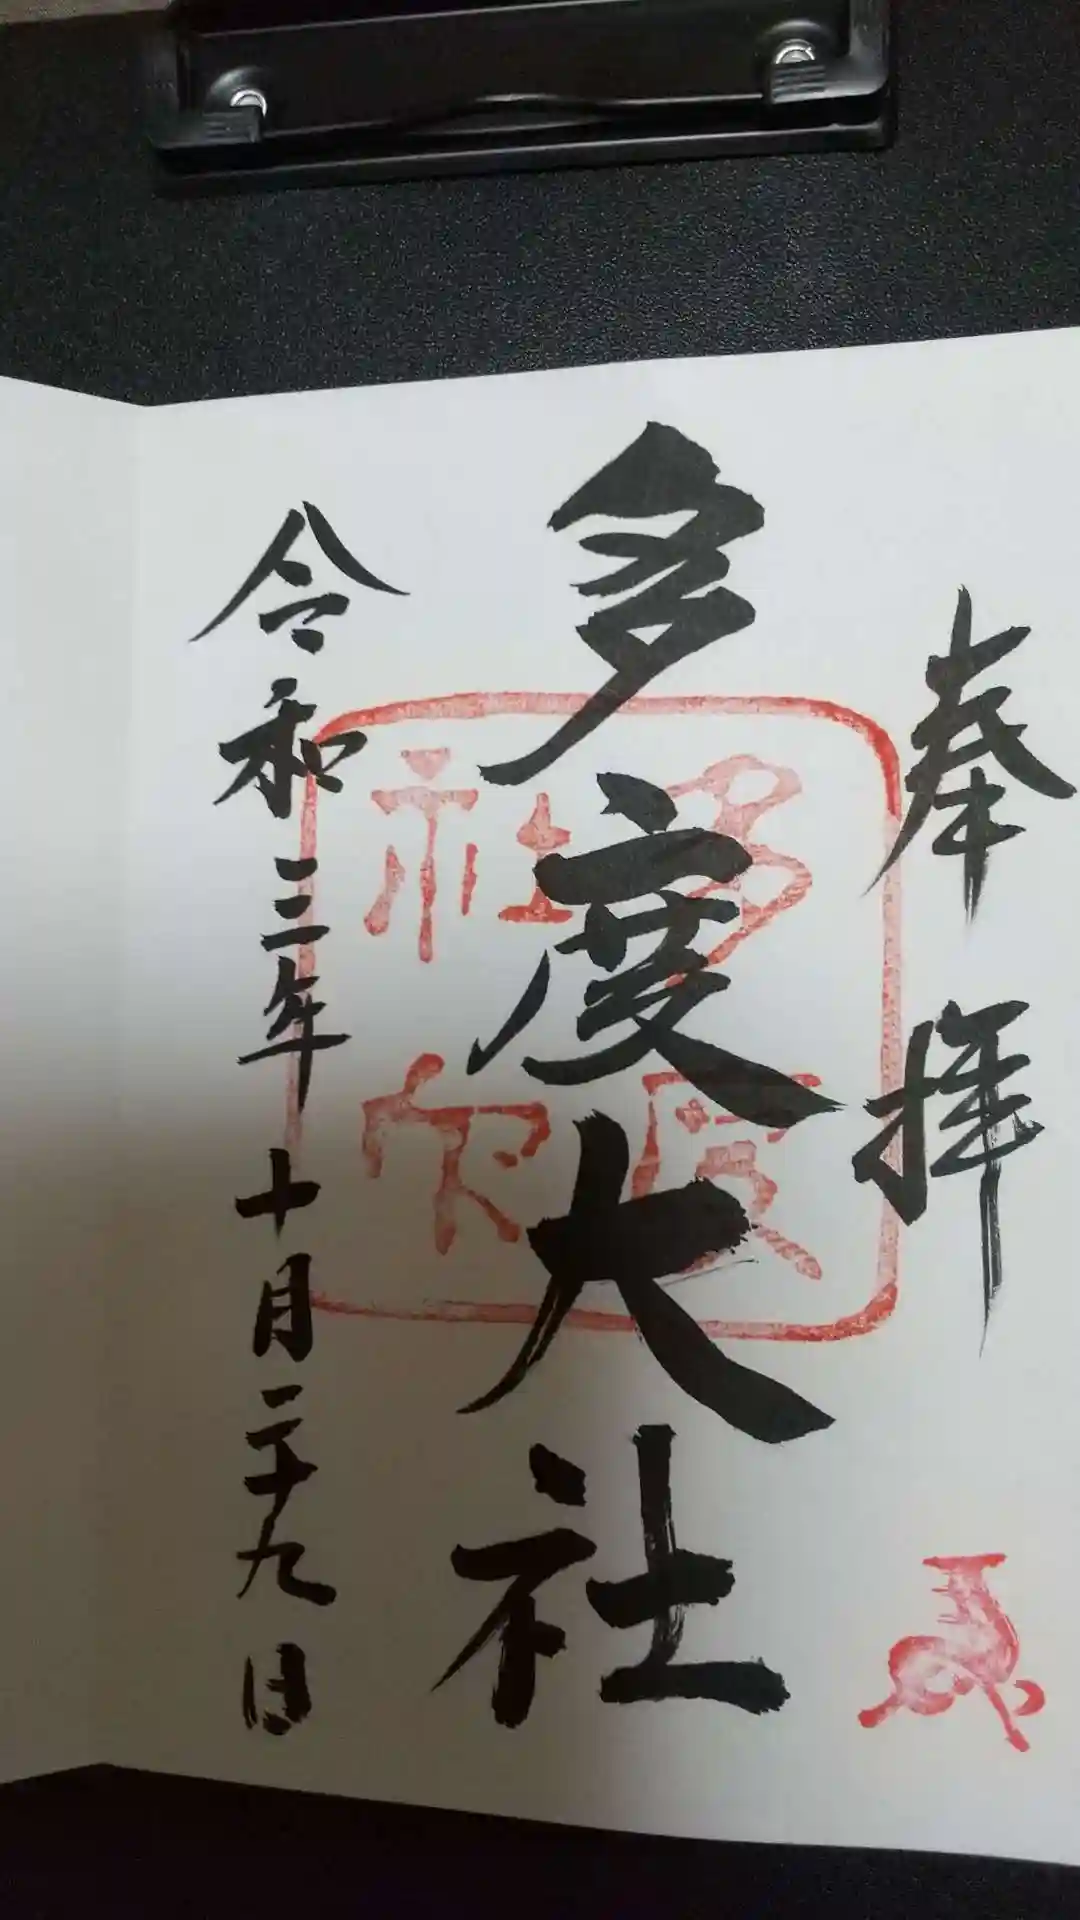 奉拝
多度大社
令和三年十月二十九日